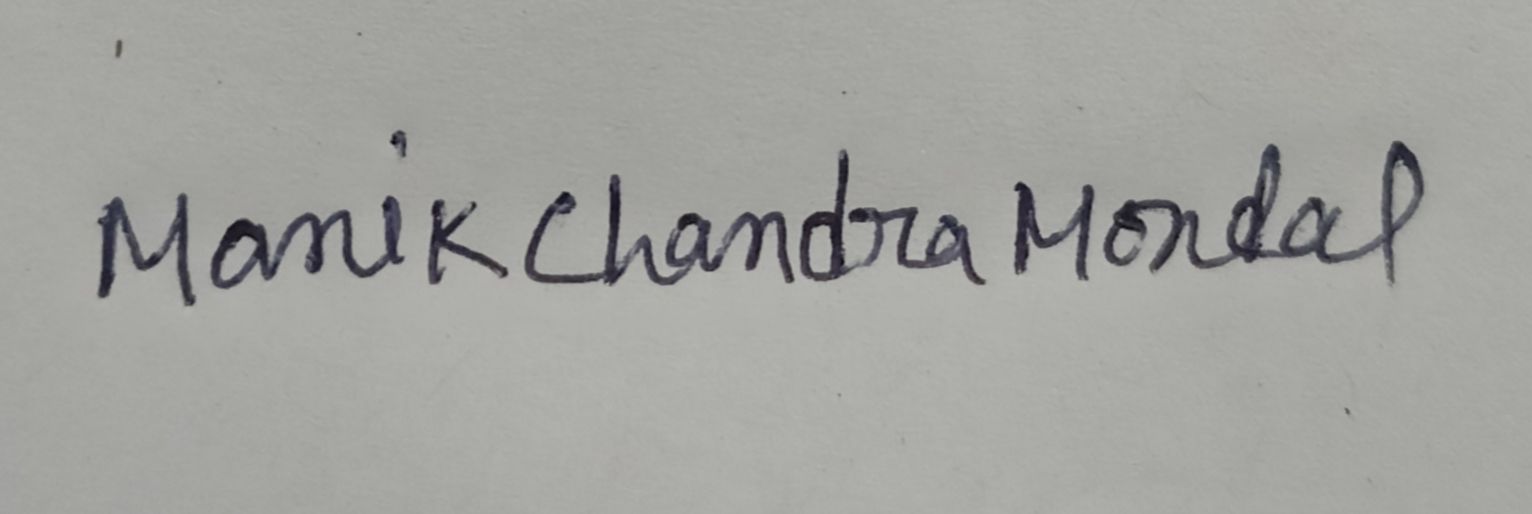 Manik Chandra Mondal